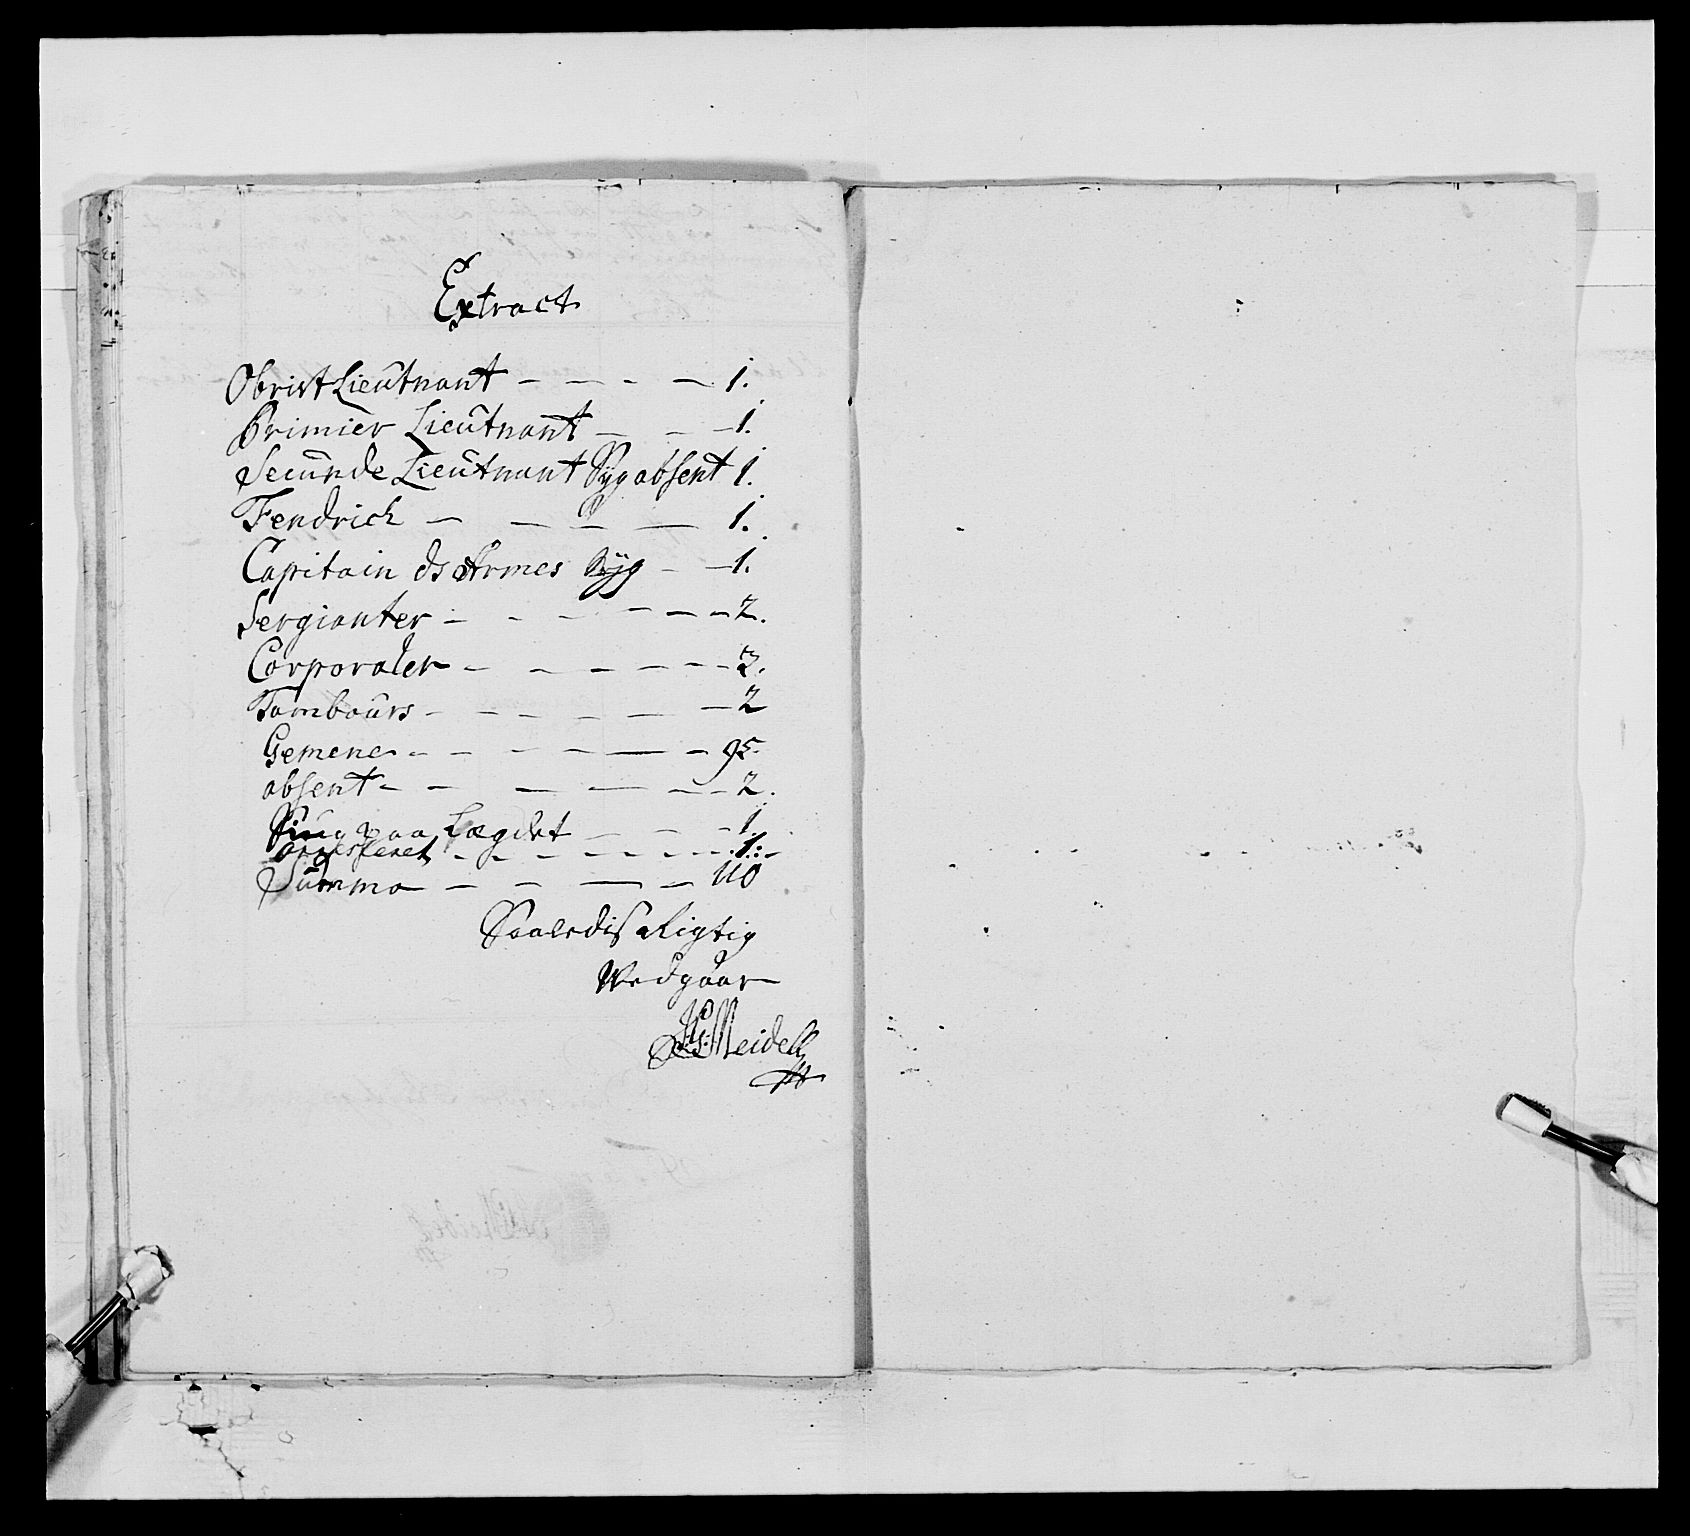 Extract
Obrist Lieutnant - - - - 1.
Primier Lieutnant - - - 1.
Secunde Lieutnant Syg absent 1.
Fendrich - - - - 1.
Capitain ds Armes Syg - - 1.
Sergianter - - - - - - 2.
Corporaler - - - - - - 3.
Tambours - - - - - - 2
Gemene - - - - - - 95.
absent - - - - - - 2.
Siug paa Lægdet - - - 1.
arresteret - - - - - - - 1.
Summa - - - - 110
Saaledis Rigtig
Wedgaar
Meidell